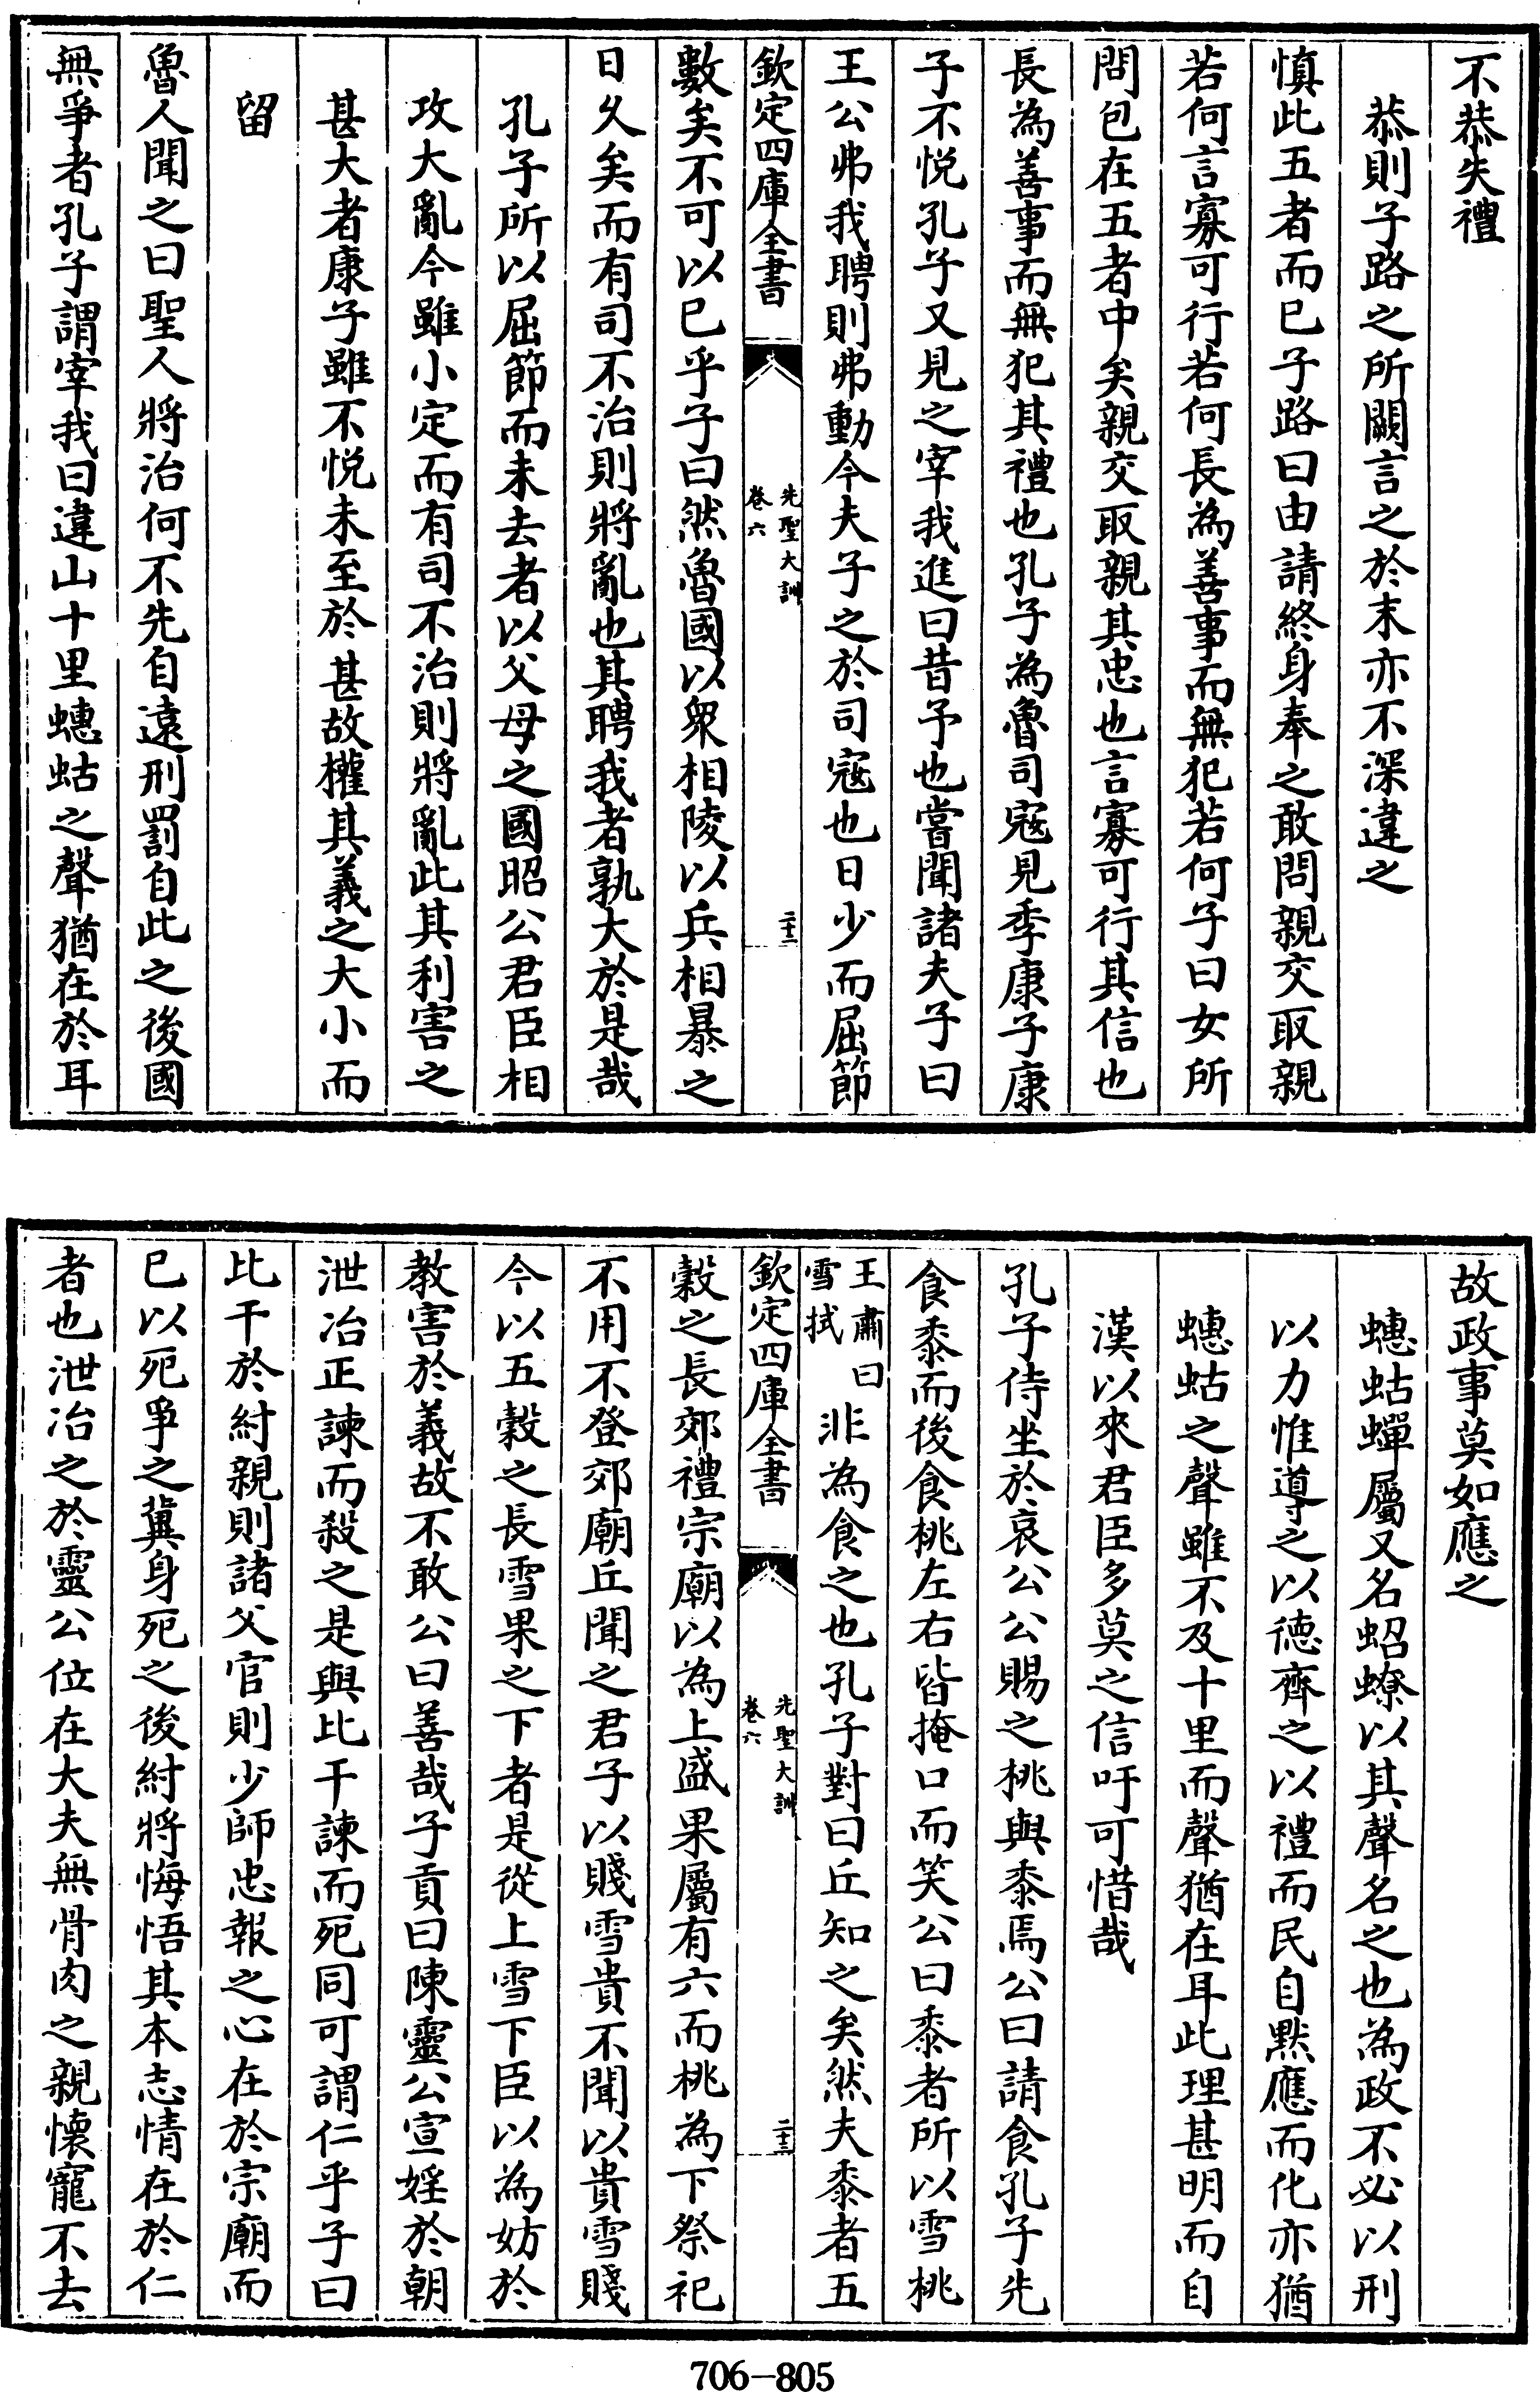 不恭失禮
恭則子路之所闕言之於末亦不深違之
慎此五者而已子路曰由請終身奉之敢問親交取親
若何言寡可行若何長為善事而無犯若何子曰女所
問包在五者中矣親交取親其忠也言寡可行其信也
長為善事而無犯其禮也孔子為魯司寇見季康子康
子不悦孔子又見之宰我進曰昔予也嘗聞諸夫子曰
王公弗我聘則弗動今夫子之於司寇也日少而屈節
欽定四庫全書
先聖大訓
卷六
二十二
數矣不可以已乎子曰然魯國以衆相陵以兵相暴之
日久矣而有司不治則將亂也其聘我者孰大於是哉
孔子所以屈節而未去者以父母之國昭公君臣相
攻大亂今雖小定而有司不治則將亂此其利害之
甚大者康子雖不悦未至於甚故權其義之大小而
留
魯人聞之曰聖人將治何不先自遠刑罰自此之後國
無爭者孔子謂宰我曰違山十里蟪蛄之聲猶在於耳
故政事莫如應之
蟪蛄蟬屬又名蛁蟟以其聲名之也為政不必以刑
以力惟導之以德齊之以禮而民自黙應而化亦猶
蟪蛄之聲雖不及十里而聲猶在耳此理甚明而自
漢以來君臣多莫之信吁可惜哉
孔子侍坐於哀公公賜之桃與黍焉公曰請食孔子先
食黍而後食桃左右皆掩口而笑公曰黍者所以雪桃
王肅曰
雪拭
非為食之也孔子對曰丘知之矣然夫黍者五
欽定四庫全書
先聖大訓
卷六
二十三
穀之長郊禮宗廟以為上盛果屬有六而桃為下祭祀
不用不登郊廟丘聞之君子以賤雪貴不聞以貴雪賤
今以五穀之長雪果之下者是從上雪下臣以為妨於
教害於義故不敢公曰善哉子貢曰陳靈公宣婬於朝
泄冶正諫而殺之是與比干諫而死同可謂仁乎子曰
比干於紂親則諸父官則少師忠報之心在於宗廟而
已以死爭之冀身死之後紂將悔悟其本志情在於仁
者也泄冶之於靈公位在大夫無骨肉之親懐寵不去
706-805